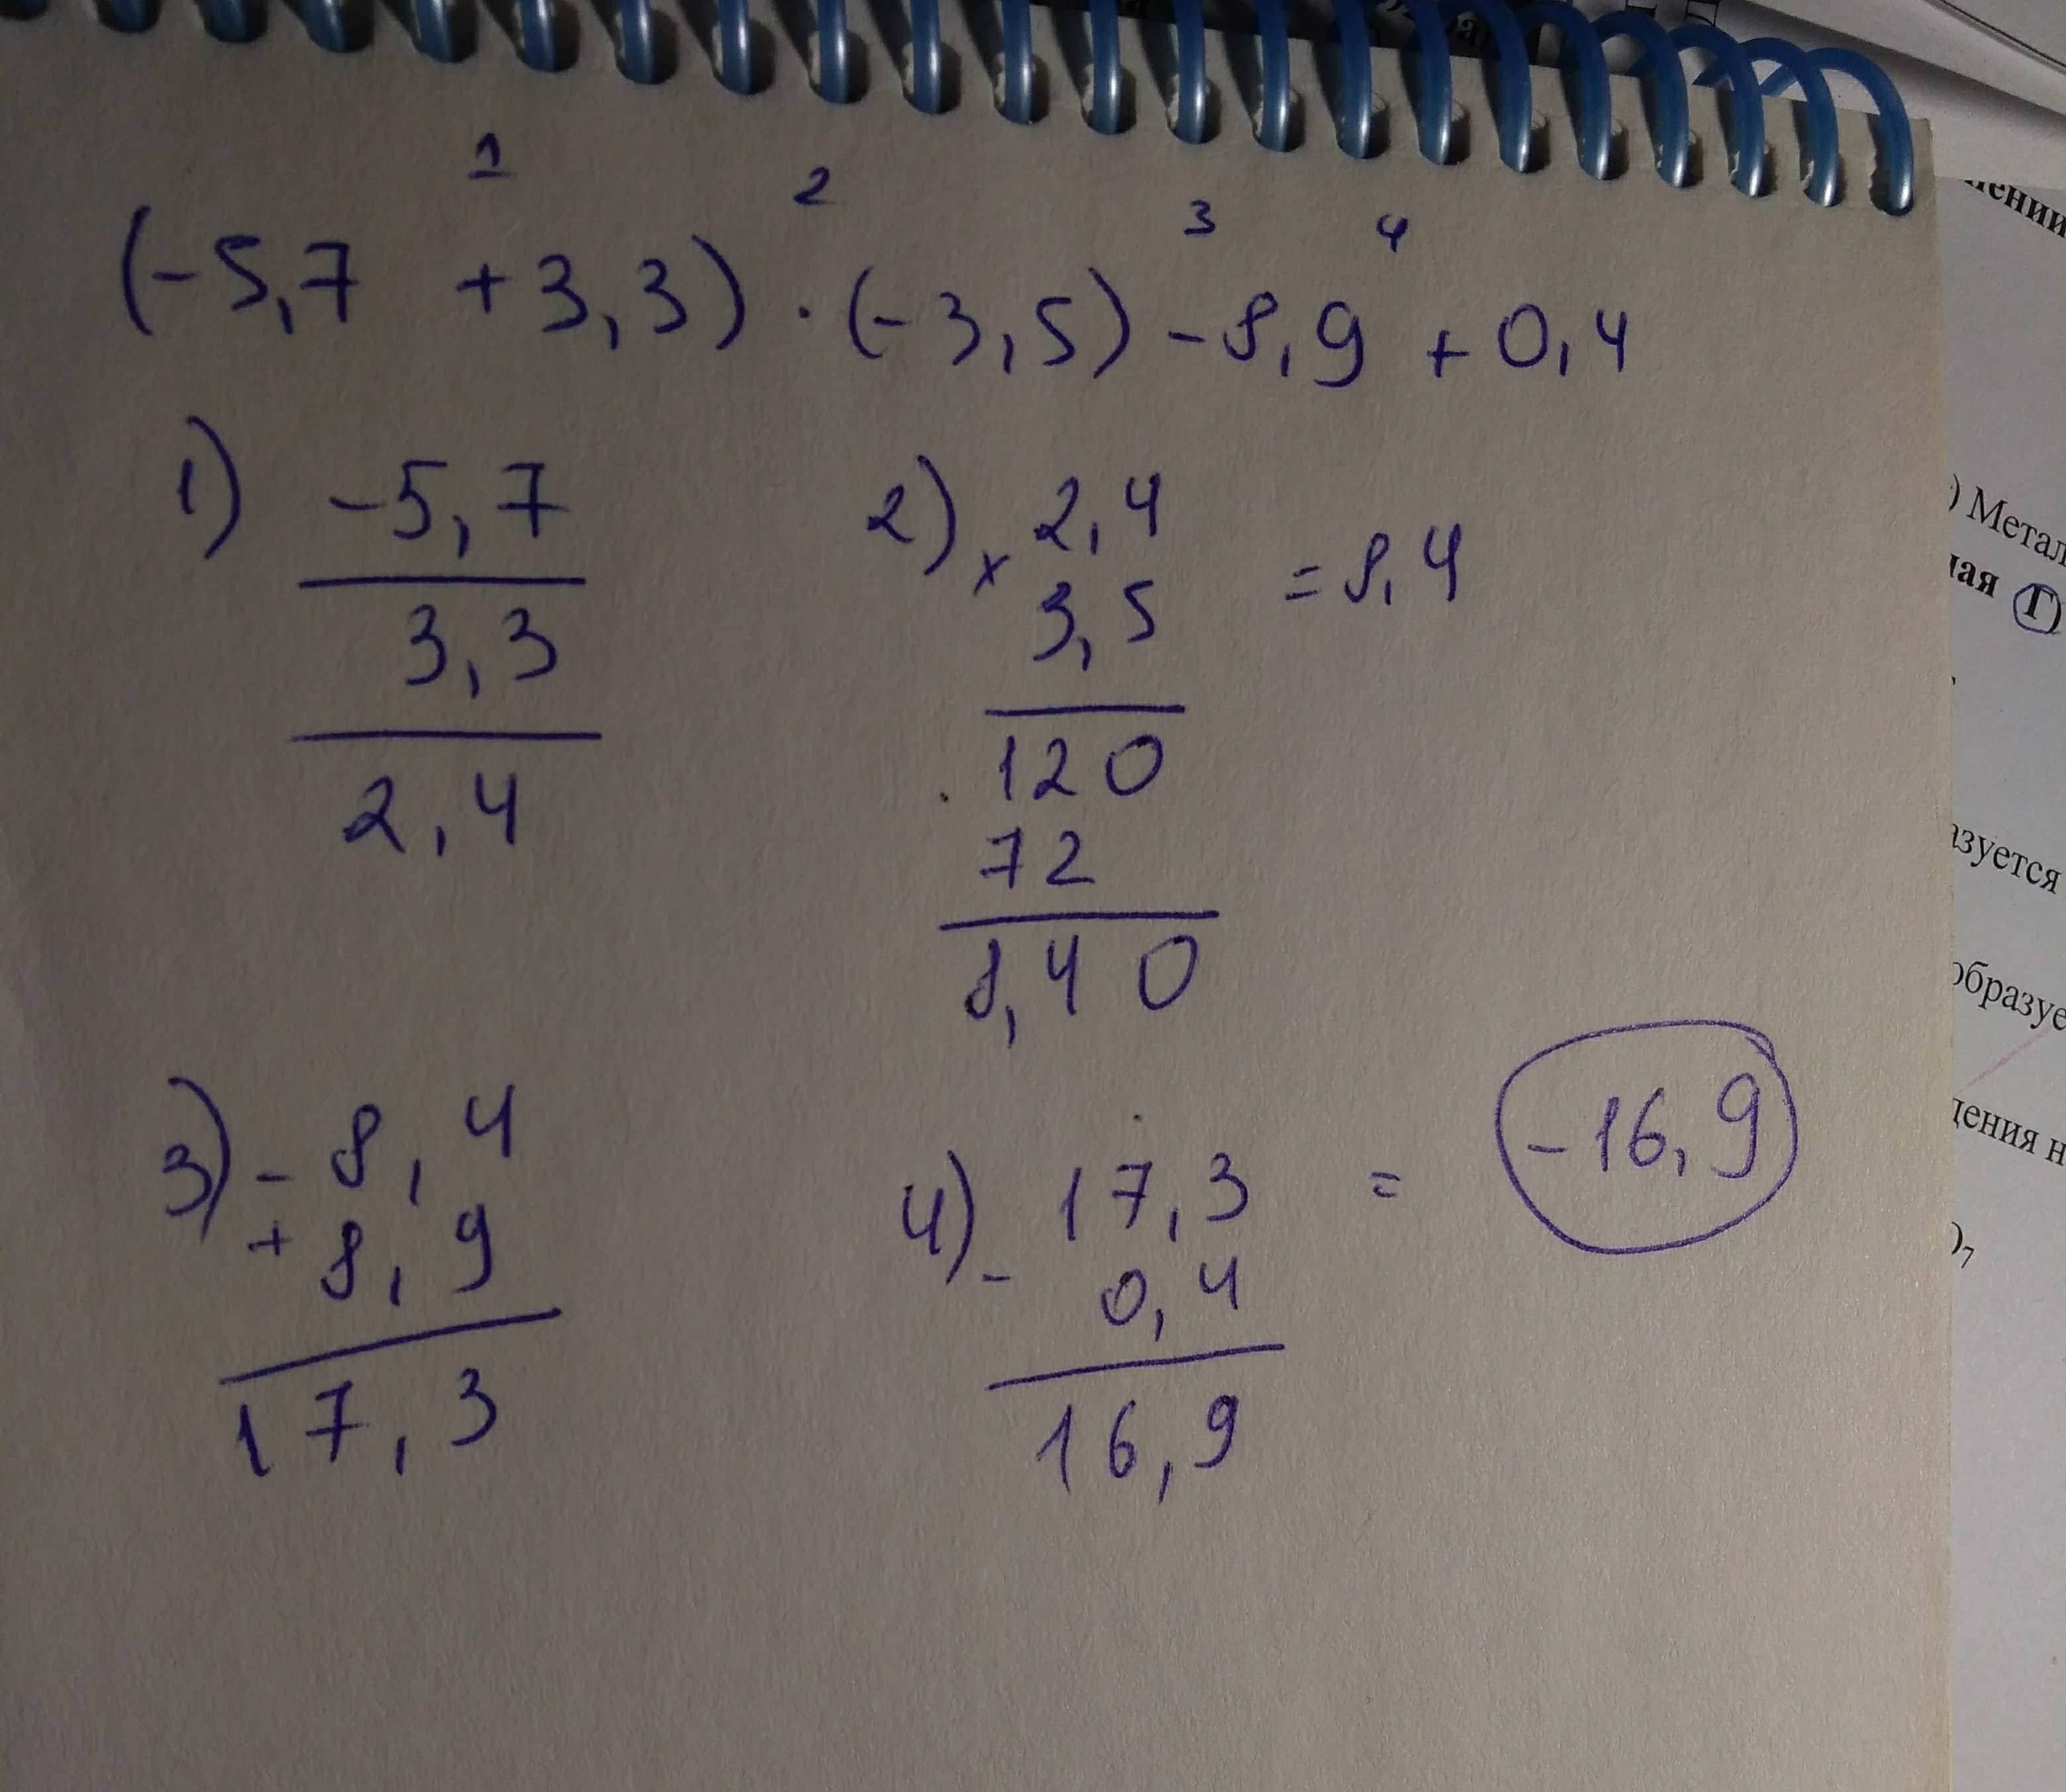 1 2 3 4
(-5,7 +3,3) · (-3,5) - 8,9 + 0,4
1) -5,7
3,3
2,4
2) × 2,4 = 8,4
3,5
120
72
8,40
3) - 8,4
+ 8,9
17,3
4) - 17,3 = -16,9
0,4
16,9
) Метал
ная Г)
азуется
образуе
)7